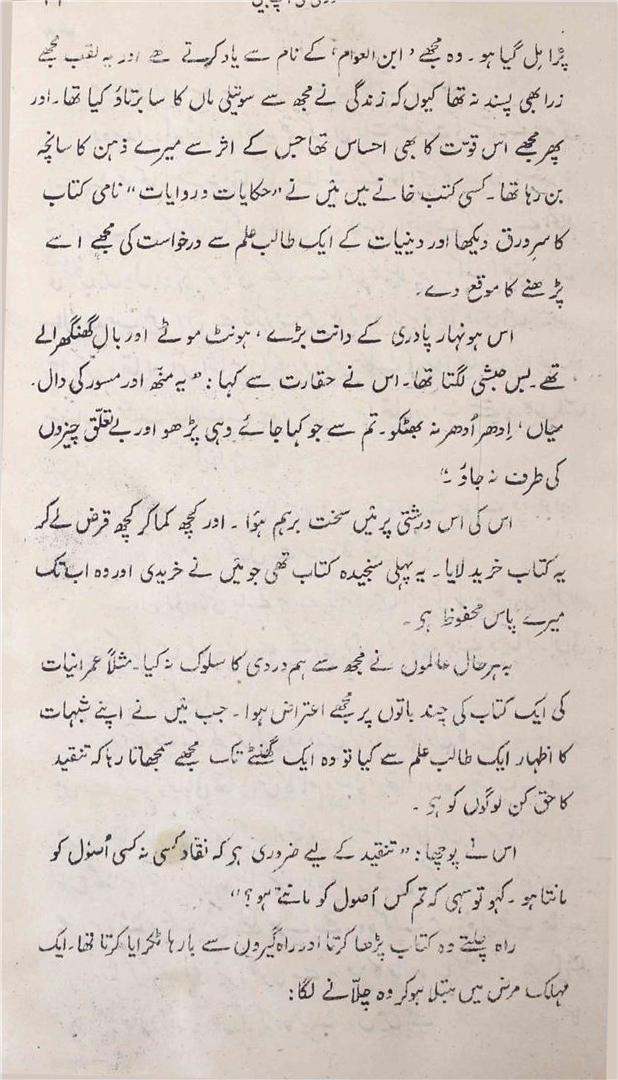 پڑا مل گیا ہو۔ وہ مجھے ’ابن العوام‘ کے نام سے یاد کرتے تھے اور یہ لقب مجھے
ذرا بھی پسند نہ تھا کیوں کہ زندگی نے مجھ سے سوتیلی ماں کا سا برتاؤ کیا تھا۔ اور
پھر مجھے اس قوت کا بھی احساس تھا جس کے اثر سے میرے ذہن کا سانچہ
بن رہا تھا۔ کسی کتب خانے میں میں نے ”حکایات و روایات“ نامی کتاب
کا سرورق دیکھا اور دینیات کے ایک طالب علم سے درخواست کی مجھے اسے
پڑھنے کا موقع دے۔
اس ہونہار پادری کے دانت بڑے، ہونٹ موٹے اور بال گھنگھرالے
تھے۔ بس حبشی لگتا تھا۔ اس نے حقارت سے کہا: ”یہ منھ اور مسور کی دال۔
میاں، اِدھر اُدھر نہ بھٹکو۔ تم سے جو کہا جائے وہی پڑھو اور بے تعلّق چیزوں
کی طرف نہ جاؤ۔“
اس کی اس درشتی پر میں سخت برہم ہؤا۔ اور کچھ کما کر کچھ قرض لے کر
یہ کتاب خرید لایا۔ یہ پہلی سنجیدہ کتاب تھی جو میں نے خریدی اور وہ اب تک
میرے پاس محفوظ ہی۔
بہ ہر حال عالموں نے مجھ سے ہم دردی کا سلوک نہ کیا۔ مثلاً عمرانیات
کی ایک کتاب کی چند باتوں پر مجھے اعتراض ہوا۔ جب میں نے اپنے شبہات
کا اظہار ایک طالب علم سے کیا تو وہ ایک گھنٹے تک مجھے سمجھاتا رہا کہ تنقید
کا حق کن لوگوں کو ہی۔
اس نے پوچھا: ”تنقید کے لیے ضروری ہی کہ نقاد کسی نہ کسی اُصول کو
مانتا ہو۔ کہو تو سہی کہ تم کس اُصول کو مانتے ہو؟“
راہ چلتے وہ کتاب پڑھا کرتا اور راہ گیروں سے بارہا ٹکرایا کرتا تھا۔ ایک
مہلک مرض میں مبتلا ہو کر وہ چلّانے لگا: